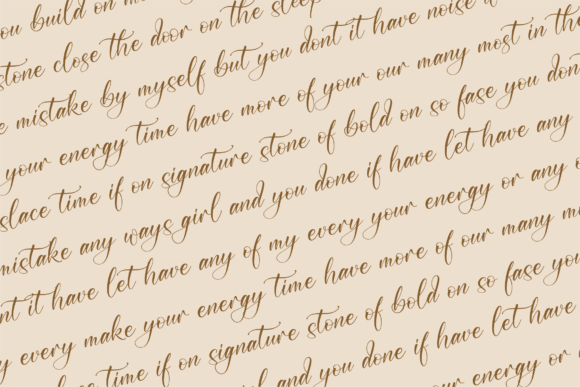 you build on
stone close the door on the sleep
mistake by myself but you dont it have noise
your energy time have more of your our many most in the
slace time if on signature stone of bold on so fase you don
mistake any ways girl and you done if have let have any
nt it have let have any of my every your energy or any
y every make your energy time have more of our many
time if on signature stone of bold on so fase you
girl and you done if have let have
your energy or